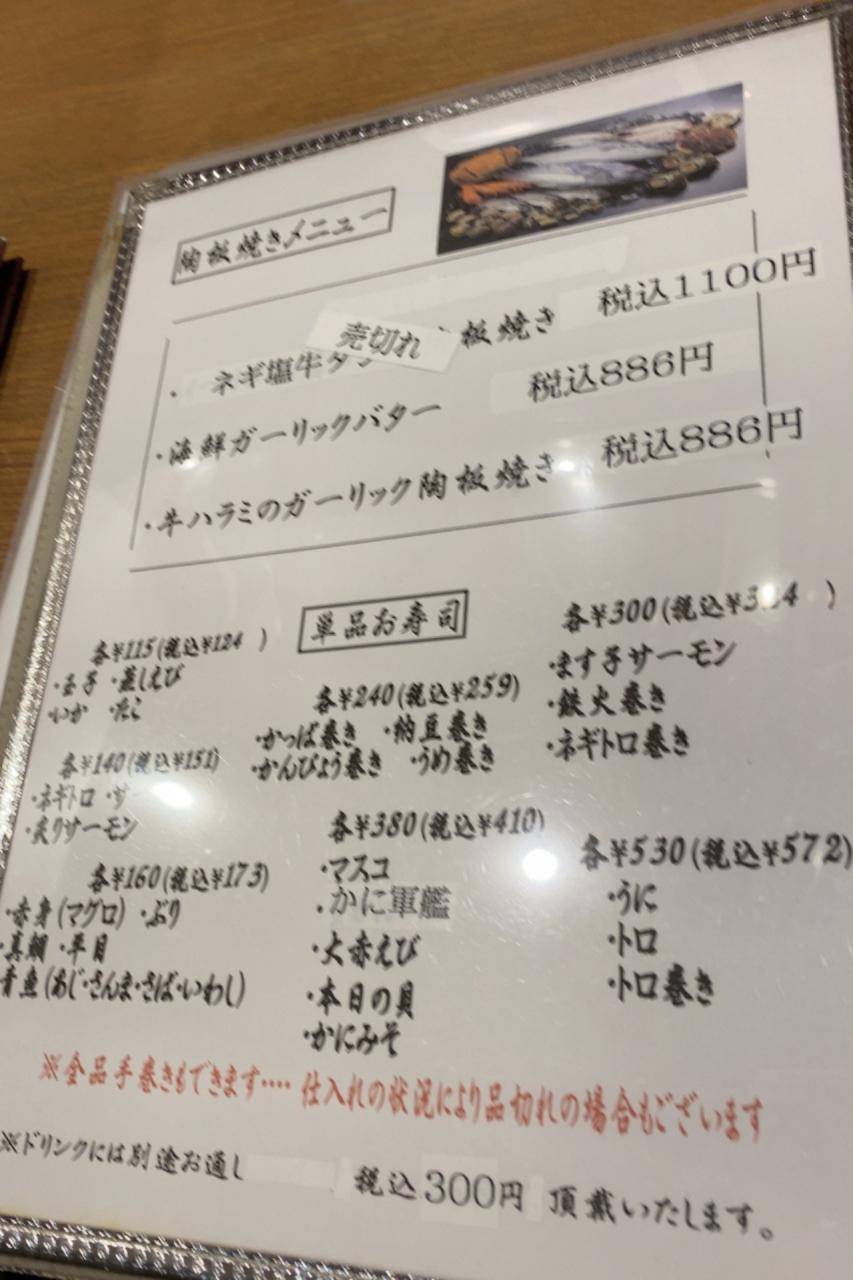 陶板焼きメニュー
・ネギ塩牛タン 売切れ 板焼き 税込1100円
・海鮮ガーリックバター 税込886円
・牛ハラミのガーリック陶板焼き 税込886円
単品お寿司
各¥115(税込¥124 )
・玉子 ・蒸しえび
・いか ・たこ
各¥140(税込¥151)
・ネギトロ ・サ
・炙りサーモン
各¥160(税込¥173)
・赤身(マグロ) ・ぶり
・真鯛 ・平目
青魚(あじ・さんま・さば・いわし)
各¥240(税込¥259)
・かっぱ巻き ・納豆巻き
・かんぴょう巻き ・うめ巻き
各¥380(税込¥410)
・マスコ
・かに軍艦
・大赤えび
・本日の貝
・かにみそ
各¥300(税込¥324 )
・ます子サーモン
・鉄火巻き
・ネギトロ巻き
各¥530(税込¥572)
・うに
・トロ
・トロ巻き
※全品手巻きもできます‥‥ 仕入れの状況により品切れの場合もございます
※ドリンクには別途お通し 税込300円 頂戴いたします。